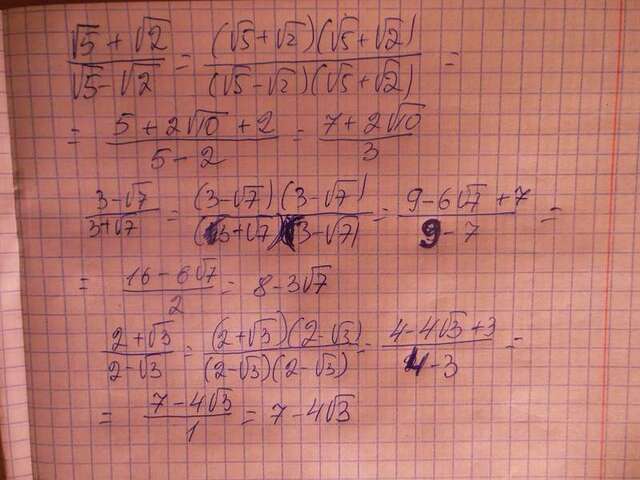 (√5 + √2)/(√5 - √2) = ((√5 + √2)(√5 + √2))/((√5 - √2)(√5 + √2)) =
= (5 + 2√10 + 2)/(5 - 2) = (7 + 2√10)/3
(3 - √7)/(3 + √7) = ((3 - √7)(3 - √7))/((3 + √7)(3 - √7)) = (9 - 6√7 + 7)/(9 - 7) =
= (16 - 6√7)/2 = 8 - 3√7
(2 + √3)/(2 - √3) = ((2 + √3)(2 - √3))/((2 - √3)(2 - √3)) = (4 - 4√3 + 3)/(4 - 3) =
= (7 - 4√3)/1 = 7 - 4√3